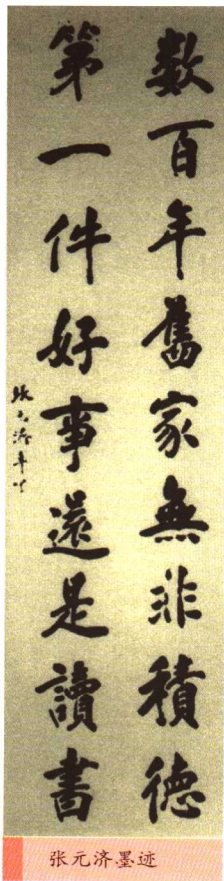 數百年舊家無非積德
第一件好事還是讀書
張元濟
张元济墨迹